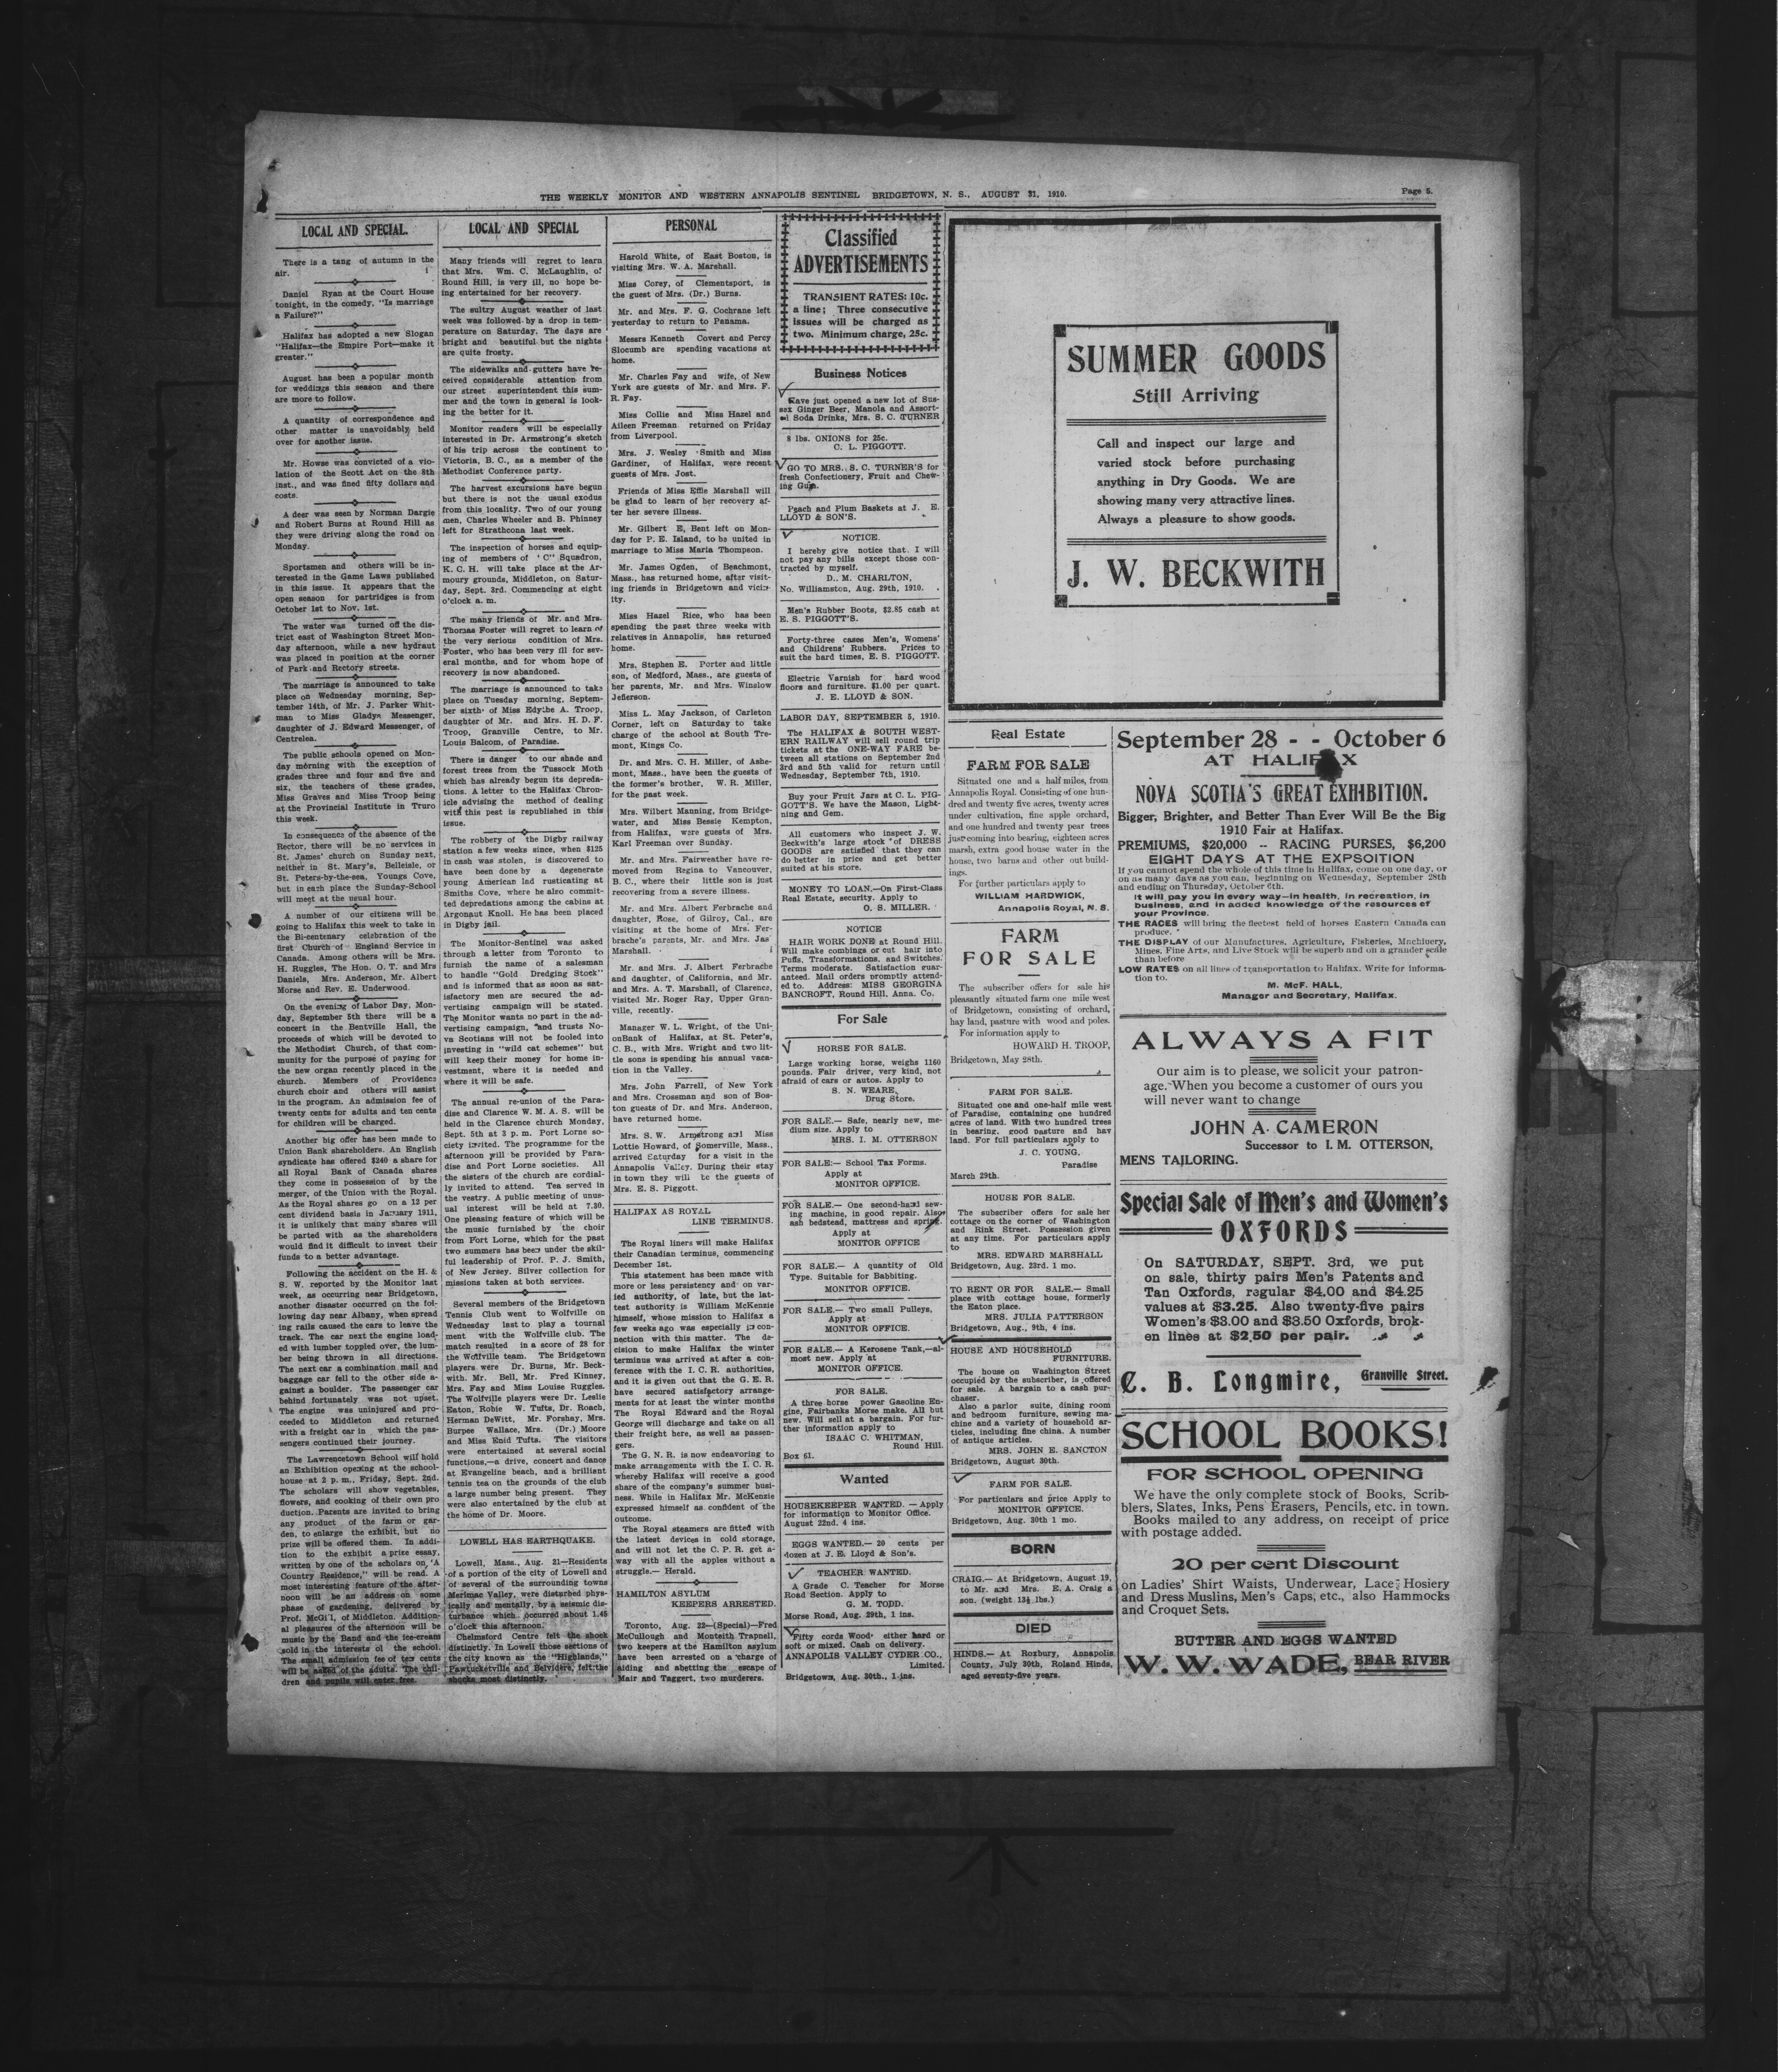 THE WEEKLY MONITOR AND WESTERN ANNAPOLIS SENTINEL BRIDGETOWN, N. S., AUGUST 31, 1910.
Page 5.
LOCAL AND SPECIAL.
There is a tang of autumn in the
air.
Daniel Ryan at the Court House
tonight, in the comedy, "Is marriage
a Failure?"
Halifax has adopted a new Slogan
"Halifax—the Empire Port—make it
greater."
August has been a popular month
for weddings this season and there
are more to follow.
A quantity of correspondence and
other matter is unavoidably held
over for another issue.
Mr. Howse was convicted of a vio-
lation of the Scott Act on the 8th
inst., and was fined fifty dollars and
costs.
A deer was seen by Norman Dargie
and Robert Burns at Round Hill as
they were driving along the road on
Monday.
Sportsmen and others will be in-
terested in the Game Laws published
in this issue. It appears that the
open season for partridges is from
October 1st to Nov. 1st.
The water was turned off the dis-
trict east of Washington Street Mon-
day afternoon, while a new hydraut
was placed in position at the corner
of Park and Rectory streets.
The marriage is announced to take
place on Wednesday morning, Sep-
tember 14th, of Mr. J. Parker Whit-
man to Miss Gladys Messenger,
daughter of J. Edward Messenger, of
Centrelea.
The public schools opened on Mon-
day morning with the exception of
grades three and four and five and
six, the teachers of these grades,
Miss Graves and Miss Troop being
at the Provincial Institute in Truro
this week.
In consequence of the absence of the
Rector, there will be no services in
St. James' church on Sunday next,
neither in St. Mary's, Belleisle, or
St. Peters-by-the-sea, Youngs Cove,
but in each place the Sunday-School
will meet at the usual hour.
A number of our citizens will be
going to Halifax this week to take in
the Bi-centenary celebration of the
first Church of England Service in
Canada. Among others will be Mrs.
H. Ruggles, The Hon. O. T. and Mrs
Daniels, Mrs. Anderson, Mr. Albert
Morse and Rev. E. Underwood.
On the evening of Labor Day, Mon-
day, September 5th there will be a
concert in the Bentville Hall, the
proceeds of which will be devoted to
the Methodist Church, of that com-
munity for the purpose of paying for
the new organ recently placed in the
church. Members of Providence
church choir and others will assist
in the program. An admission fee of
twenty cents for adults and ten cents
for children will be charged.
Another big offer has been made to
Union Bank shareholders. An English
syndicate has offered $240 a share for
all Royal Bank of Canada shares
they come in possession of by the
merger, of the Union with the Royal.
As the Royal shares go on a 12 per
cent dividend basis in January 1911,
it is unlikely that many shares will
be parted with as the shareholders
would find it difficult to invest their
funds to a better advantage.
Following the accident on the H. &
S. W. reported by the Monitor last
week, as occurring near Bridgetown,
another disaster occurred on the fol-
lowing day near Albany, when spread
ing rails caused the cars to leave the
track. The car next the engine load-
ed with lumber toppled over, the lum-
ber being thrown in all directions.
The next car a combination mail and
baggage car fell to the other side a-
gainst a boulder. The passenger car
behind fortunately was not upset.
The engine was uninjured and pro-
ceeded to Middleton and returned
with a freight car in which the pas-
sengers continued their journey.
The Lawrencetown School will hold
an Exhibition opening at the school-
house at 2 p. m., Friday, Sept. 2nd.
The scholars will show vegetables,
flowers, and cooking of their own pro
duction. Parents are invited to bring
any product of the farm or gar-
den, to enlarge the exhibit, but no
prize will be offered them. In addi-
tion to the exhibit a prize essay,
written by one of the scholars on, 'A
Country Residence," will be read. A
most interesting feature of the after-
noon will be an address on some
phase of gardening, delivered by
Prof. McGill, of Middleton. Addition-
al pleasures of the afternoon will be
music by the Band and the ice-cream
sold in the interests of the school.
The small admission fee of ten cents
will be asked of the adults. The chil-
dren and pupils will enter free.
LOCAL AND SPECIAL
Many friends will regret to learn
that Mrs. Wm. C. McLaughlin, of
Round Hill, is very ill, no hope be-
ing entertained for her recovery.
The sultry August weather of last
week was followed by a drop in tem-
perature on Saturday. The days are
bright and beautiful but the nights
are quite frosty.
The sidewalks and gutters have re-
ceived considerable attention from
our street superintendent this sum-
mer and the town in general is look-
ing the better for it.
Monitor readers will be especially
interested in Dr. Armstrong's sketch
of his trip across the continent to
Victoria, B. C., as a member of the
Methodist Conference party.
The harvest excursions have begun
but there is not the usual exodus
from this locality. Two of our young
men, Charles Wheeler and B. Phinney
left for Strathcona last week.
The inspection of horses and equip-
ing of members of ' C" Squadron,
K. C. H. will take place at the Ar-
moury grounds, Middleton, on Satur-
day, Sept. 3rd. Commencing at eight
o'clock a. m.
The many friends of Mr. and Mrs.
Thomas Foster will regret to learn of
the very serious condition of Mrs.
Foster, who has been very ill for sev-
eral months, and for whom hope of
recovery is now abandoned.
The marriage is announced to take
place on Tuesday morning, Septem-
ber sixth of Miss Edythe A. Troop,
daughter of Mr. and Mrs. H. D. F.
Troop, Granville Centre, to Mr.
Louis Balcom, of Paradise.
There is danger to our shade and
forest trees from the Tussock Moth
which has already begun its depreda-
tions. A letter to the Halifax Chron-
icle advising the method of dealing
with this pest is republished in this
issue.
The robbery of the Digby railway
station a few weeks since, when $125
in cash was stolen, is discovered to
have been done by a degenerate
young American lad rusticating at
Smiths Cove, where he also commit-
ted depredations among the cabins at
Argonaut Knoll. He has been placed
in Digby jail.
The Monitor-Sentinel was asked
through a letter from Toronto to
furnish the name of a salesman
to handle "Gold Dredging Stock"
and is informed that as soon as sat-
isfactory men are secured the ad-
vertising campaign will be stated.
The Monitor wants no part in the ad-
vertising campaign, and trusts No-
va Scotians will not be fooled into
investing in "wild cat schemes" but
will keep their money for home in-
vestment, where it is needed and
where it will be safe.
The annual re-union of the Para-
dise and Clarence W. M. A. S. will be
held in the Clarence church Monday,
Sept. 5th at 3 p. m. Port Lorne so-
ciety invited. The programme for the
afternoon will be provided by Para-
dise and Port Lorne societies. All
the sisters of the church are cordial-
ly invited to attend. Tea served in
the vestry. A public meeting of unus-
ual interest will be held at 7.30.
One pleasing feature of which will be
the music furnished by the choir
from Port Lorne, which for the past
two summers has been under the skil-
ful leadership of Prof. P. J. Smith,
of New Jersey. Silver collection for
missions taken at both services.
Several members of the Bridgetown
Tennis Club went to Wolfville on
Wednesday last to play a tournal
ment with the Wolfville club. The
match resulted in a score of 28 for
the Wolfville team. The Bridgetown
players were Dr. Burns, Mr. Beck-
with. Mr. Bell, Mr. Fred Kinney,
Mrs. Fay and Miss Louise Ruggles.
The Wolfville players were Dr. Leslie
Eaton, Robie W. Tufts, Dr. Roach,
Herman DeWitt, Mr. Forshay, Mrs.
Burpee Wallace, Mrs. (Dr.) Moore
and Miss Enid Tufts. The visitors
were entertained at several social
functions,—a drive, concert and dance
at Evangeline beach, and a brilliant
tennis tea on the grounds of the club
a large number being present. They
were also entertained by the club at
the home of Dr. Moore.
LOWELL HAS EARTHQUAKE.
Lowell, Mass., Aug. 21—Residents
of a portion of the city of Lowell and
of several of the surrounding towns
Merimac Valley, were disturbed phys-
ically and mentally, by a seismic dis-
turbance which occurred about 1.45
o'clock this afternoon.
Chelmsford Centre felt the shock
distinctly. In Lowell those sections of
the city known as the "Highlands,"
Pawtucketville and Belvidere, felt the
shocks most distinctly.
PERSONAL
Harold White, of East Boston, is
visiting Mrs. W. A. Marshall.
Miss Corey, of Clementsport, is
the guest of Mrs. (Dr.) Burns.
Mr. and Mrs. F. G. Cochrane left
yesterday to return to Panama.
Messrs Kenneth Covert and Percy
Slocumb are spending vacations at
home.
Mr. Charles Fay and wife, of New
York are guests of Mr. and Mrs. F.
R. Fay.
Miss Collie and Miss Hazel and
Aileen Freeman returned on Friday
from Liverpool.
Mrs. J. Wesley Smith and Miss
Gardiner, of Halifax, were recent
guests of Mrs. Jost.
Friends of Miss Effie Marshall will
be glad to learn of her recovery af-
ter her severe illness.
Mr. Gilbert E, Bent left on Mon-
day for P. E. Island, to be united in
marriage to Miss Maria Thompson.
Mr. James Ogden, of Beachmont,
Mass., has returned home, after visit-
ing friends in Bridgetown and vicin-
ity.
Miss Hazel Rice, who has been
spending the past three weeks with
relatives in Annapolis, has returned
home.
Mrs. Stephen E. Porter and little
son, of Medford, Mass., are guests of
her parents, Mr. and Mrs. Winslow
Jefferson.
Miss L. May Jackson, of Carleton
Corner, left on Saturday to take
charge of the school at South Tre-
mont, Kings Co.
Dr. and Mrs. C. H. Miller, of Ashe-
mont, Mass., have been the guests of
the former's brother, W. R. Miller,
for the past week.
Mrs. Wilbert Manning, from Bridge-
water, and Miss Bessie Kempton,
from Halifax, were guests of Mrs.
Karl Freeman over Sunday.
Mr. and Mrs. Fairweather have re-
moved from Regina to Vancouver,
B. C., where their little son is just
recovering from a severe illness.
Mr. and Mrs. Albert Ferbrache and
daughter, Rose, of Gilroy, Cal., are
visiting at the home of Mrs. Fer-
brache's parents, Mr. and Mrs. Jas
Marshall.
Mr. and Mrs. J. Albert Ferbrache
and daughter, of California, and Mr.
and Mrs. A. T. Marshall, of Clarence,
visited Mr. Roger Ray, Upper Gran-
ville, recently.
Manager W. L. Wright, of the Uni-
onBank of Halifax, at St. Peter's,
C. B., with Mrs. Wright and two lit-
tle sons is spending his annual vaca-
tion in the Valley.
Mrs. John Farrell, of New York
and Mrs. Crossman and son of Bos-
ton guests of Dr. and Mrs. Anderson,
have returned home.
Mrs. S. W. Armstrong and Miss
Lottie Howard, of Somerville, Mass.,
arrived Saturday for a visit in the
Annapolis Valley. During their stay
in town they will be the guests of
Mrs. E. S. Piggott.
HALIFAX AS ROYAL
LINE TERMINUS.
The Royal liners will make Halifax
their Canadian terminus, commencing
December 1st.
This statement has been made with
more or less persistency and on var-
ied authority, of late, but the lat-
test authority is William McKenzie
himself, whose mission to Halifax a
few weeks ago was especially in con-
nection with this matter. The de-
cision to make Halifax the winter
terminus was arrived at after a con-
ference with the I. C. R. authorities,
and it is given out that the G. E. R.
have secured satisfactory arrange-
ments for at least the winter months
The Royal Edward and the Royal
George will discharge and take on all
their freight here, as well as passen-
gers.
The G. N. R. is now endeavoring to
make arrangements with the I. C. R.
whereby Halifax will receive a good
share of the company's summer busi-
ness. While in Halifax Mr. McKenzie
expressed himself as confident of the
outcome.
The Royal steamers are fitted with
the latest devices in cold storage,
and will not let the C. P. R. get a-
way with all the apples without a
struggle.— Herald.
HAMILTON ASYLUM
KEEPERS ARRESTED.
Toronto, Aug. 22—(Special)—Fred
McCullough and Monteith Trapnell,
two keepers at the Hamilton asylum
have been arrested on a charge of
aiding and abetting the escape of
Mair and Taggert, two murderers.
Classified
ADVERTISEMENTS
TRANSIENT RATES: 10c.
a line; Three consecutive
issues will be charged as
two. Minimum charge, 25c.
Business Notices
Have just opened a new lot of Sus-
sex Ginger Beer, Manola and Assort-
ed Soda Drinks, Mrs. S. C. TURNER
8 lbs. ONIONS for 25c.
C. L. PIGGOTT.
GO TO MRS. S. C. TURNER'S for
fresh Confectionery, Fruit and Chew-
ing Gum.
Peach and Plum Baskets at J. E.
LLOYD & SON'S.
NOTICE.
I hereby give notice that I will
not pay any bills except those con-
tracted by myself.
D. M. CHARLTON,
No. Williamston, Aug. 29th, 1910.
Men's Rubber Boots, $2.85 cash at
E. S. PIGGOTT'S.
Forty-three cases Men's, Womens'
and Childrens' Rubbers. Prices to
suit the hard times, E. S. PIGGOTT.
Electric Varnish for hard wood
floors and furniture. $1.00 per quart.
J. E. LLOYD & SON.
LABOR DAY, SEPTEMBER 5, 1910.
The HALIFAX & SOUTH WEST-
ERN RAILWAY will sell round trip
tickets at the ONE-WAY FARE be-
tween all stations on September 2nd
3rd and 5th valid for return until
Wednesday, September 7th, 1910.
Buy your Fruit Jars at C. L. PIG-
GOTT'S. We have the Mason, Light-
ning and Gem.
All customers who inspect J. W.
Beckwith's large stock of DRESS
GOODS are satisfied that they can
do better in price and get better
suited at his store.
MONEY TO LOAN.—On First-Class
Real Estate, security. Apply to
O. S. MILLER.
NOTICE
HAIR WORK DONE at Round Hill.
Will make combings or cut hair into
Puffs, Transformations, and Switches.
Terms moderate. Satisfaction guar-
anteed. Mail orders promptly attend-
ed to. Address: MISS GEORGINA
BANCROFT, Round Hill, Anna. Co.
For Sale
HORSE FOR SALE.
Large working horse, weighs 1160
pounds. Fair driver, very kind, not
afraid of cars or autos. Apply to
S. N. WEARE,
Drug Store.
FOR SALE.— Safe, nearly new, me-
dium size. Apply to
MRS. I. M. OTTERSON
FOR SALE:— School Tax Forms.
Apply at
MONITOR OFFICE.
FOR SALE.— One second-hand sew-
ing machine, in good repair. Also
ash bedstead, mattress and spring.
Apply at
MONITOR OFFICE
FOR SALE.— A quantity of Old
Type. Suitable for Babbiting.
MONITOR OFFICE.
FOR SALE.— Two small Pulleys,
Apply at
MONITOR OFFICE.
FOR SALE.— A Kerosene Tank,—al-
most new. Apply at
MONITOR OFFICE.
FOR SALE.
A three horse power Gasoline En-
gine, Fairbanks Morse make. All but
new. Will sell at a bargain. For fur-
ther information apply to
ISAAC C. WHITMAN,
Round Hill.
Box 61.
Wanted
HOUSEKEEPER WANTED. — Apply
for information to Monitor Office.
August 22nd. 4 ins.
EGGS WANTED.— 20 cents per
dozen at J. E. Lloyd & Son's.
TEACHER WANTED.
A Grade C. Teacher for Morse
Road Section. Apply to
G. M. TODD.
Morse Road, Aug. 29th, 1 ins.
Fifty cords Wood either hard or
soft or mixed. Cash on delivery.
ANNAPOLIS VALLEY CYDER CO.,
Limited.
Bridgetown, Aug. 30th., 1 ins.
SUMMER GOODS
Still Arriving
Call and inspect our large and
varied stock before purchasing
anything in Dry Goods. We are
showing many very attractive lines.
Always a pleasure to show goods.
J. W. BECKWITH
Real Estate
FARM FOR SALE
Situated one and a half miles, from
Annapolis Royal. Consisting of one hun-
dred and twenty five acres, twenty acres
under cultivation, fine apple orchard,
and one hundred and twenty pear trees
just coming into bearing, eighteen acres
marsh, extra good house water in the
house, two barns and other out build-
ings.
For further particulars apply to
WILLIAM HARDWICK,
Annapolis Royal, N. S.
FARM
FOR SALE
The subscriber offers for sale his
pleasantly situated farm one mile west
of Bridgetown, consisting of orchard,
hay land, pasture with wood and poles.
For information apply to
HOWARD H. TROOP,
Bridgetown, May 28th.
FARM FOR SALE.
Situated one and one-half mile west
of Paradise, containing one hundred
acres of land. With two hundred trees
in bearing, good pasture and hay
land. For full particulars apply to
J. C. YOUNG.
Paradise
March 29th.
HOUSE FOR SALE.
The subscriber offers for sale her
cottage on the corner of Washington
and Rink Street. Possession given
at any time. For particulars apply
to
MRS. EDWARD MARSHALL
Bridgetown, Aug. 23rd. 1 mo.
TO RENT OR FOR SALE.— Small
place with cottage house, formerly
the Eaton place.
MRS. JULIA PATTERSON
Bridgetown, Aug., 9th, 4 ins.
HOUSE AND HOUSEHOLD
FURNITURE.
The house on Washington Street
occupied by the subscriber, is offered
for sale. A bargain to a cash pur-
chaser.
Also a parlor suite, dining room
and bedroom furniture, sewing ma-
chine and a variety of household ar-
ticles, including fine china. A number
of antique articles.
MRS. JOHN E. SANCTON
Bridgetown, August 30th.
FARM FOR SALE.
For particulars and price Apply to
MONITOR OFFICE.
Bridgetown, Aug. 30th 1 mo.
BORN
CRAIG.— At Bridgetown, August 19,
to Mr. and Mrs. E. A. Craig a
son. (weight 13½ lbs.)
DIED
HINDS.— At Roxbury, Annapolis
County, July 30th, Roland Hinds,
aged seventy-five years.
September 28 - - October 6
AT HALIFAX
NOVA SCOTIA'S GREAT EXHIBITION.
Bigger, Brighter, and Better Than Ever Will Be the Big
1910 Fair at Halifax.
PREMIUMS, $20,000 -- RACING PURSES, $6,200
EIGHT DAYS AT THE EXPSOITION
If you cannot spend the whole of this time in Halifax, come on one day, or
on as many days as you can, beginning on Wednesday, September 28th
and ending on Thursday, October 6th.
It will pay you in every way—in health, in recreation, in
business, and in added knowledge of the resources of
your Province.
THE RACES will bring the fleetest field of horses Eastern Canada can
produce.
THE DISPLAY of our Manufactures, Agriculture, Fisheries, Machinery,
Mines, Fine Arts, and Live Stock will be superb and on a grander scale
than before
LOW RATES on all lines of transportation to Halifax. Write for informa-
tion to.
M. McF. HALL,
Manager and Secretary, Halifax.
ALWAYS A FIT
Our aim is to please, we solicit your patron-
age. When you become a customer of ours you
will never want to change
JOHN A. CAMERON
Successor to I. M. OTTERSON,
MENS TAILORING.
Special Sale of Men's and Women's
OXFORDS
On SATURDAY, SEPT. 3rd, we put
on sale, thirty pairs Men's Patents and
Tan Oxfords, regular $4.00 and $4.25
values at $3.25. Also twenty-five pairs
Women's $3.00 and $3.50 Oxfords, brok-
en lines at $2.50 per pair.
C. B. Longmire, Granville Street.
SCHOOL BOOKS!
FOR SCHOOL OPENING
We have the only complete stock of Books, Scrib-
blers, Slates, Inks, Pens Erasers, Pencils, etc. in town.
Books mailed to any address, on receipt of price
with postage added.
20 per cent Discount
on Ladies' Shirt Waists, Underwear, Lace, Hosiery
and Dress Muslins, Men's Caps, etc., also Hammocks
and Croquet Sets.
BUTTER AND EGGS WANTED
W. W. WADE, BEAR RIVER